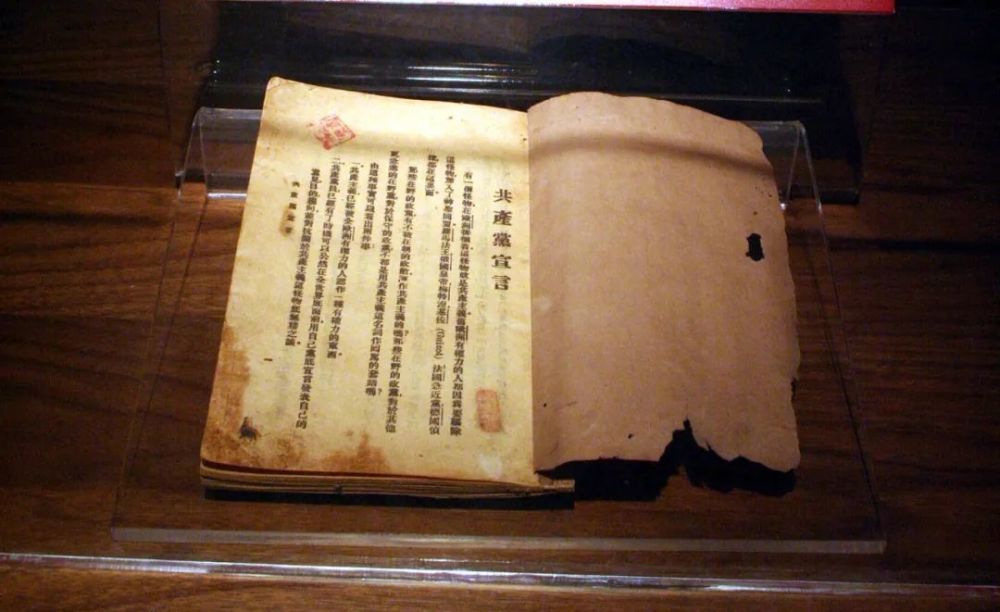 共產黨宣言
有一個怪物，在歐洲徘徊着，這怪物就是共產主義。舊歐洲有權力的人都因為要驅除
這怪物，加入了神聖同盟。羅馬法王，俄國皇帝，梅特涅，基佐(Guizot)，法國急進黨，德國偵
探，都在這裏面。
那些在野的政黨，有不被在朝的政敵，誣作共產主義的嗎？那些在野的政黨，對於其他
更急進的在野黨，對於保守的政黨，不都是用共產主義這名詞作回罵的套語嗎？
由這種事實可以看出兩件事：
一、共產主義，已經被全歐洲有權力的人認作一種有權力的東西。
二、共產黨員，已經有了時機可以公然在全世界底面前，用自己黨底宣言發表自己的
意見，目的，趨向，並對抗關於共產主義這怪物底無稽之談。
共產黨宣言